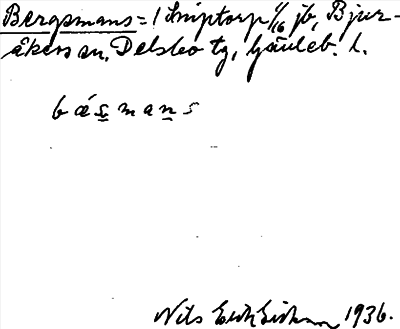 Bergsmans = 1 Sniptorp 1/16 jb, Bjur-
åkers sn, Delsbo tg, Gävleb. l.
bæ´s̲man̲s
Nils Erik Eriksson 1936.